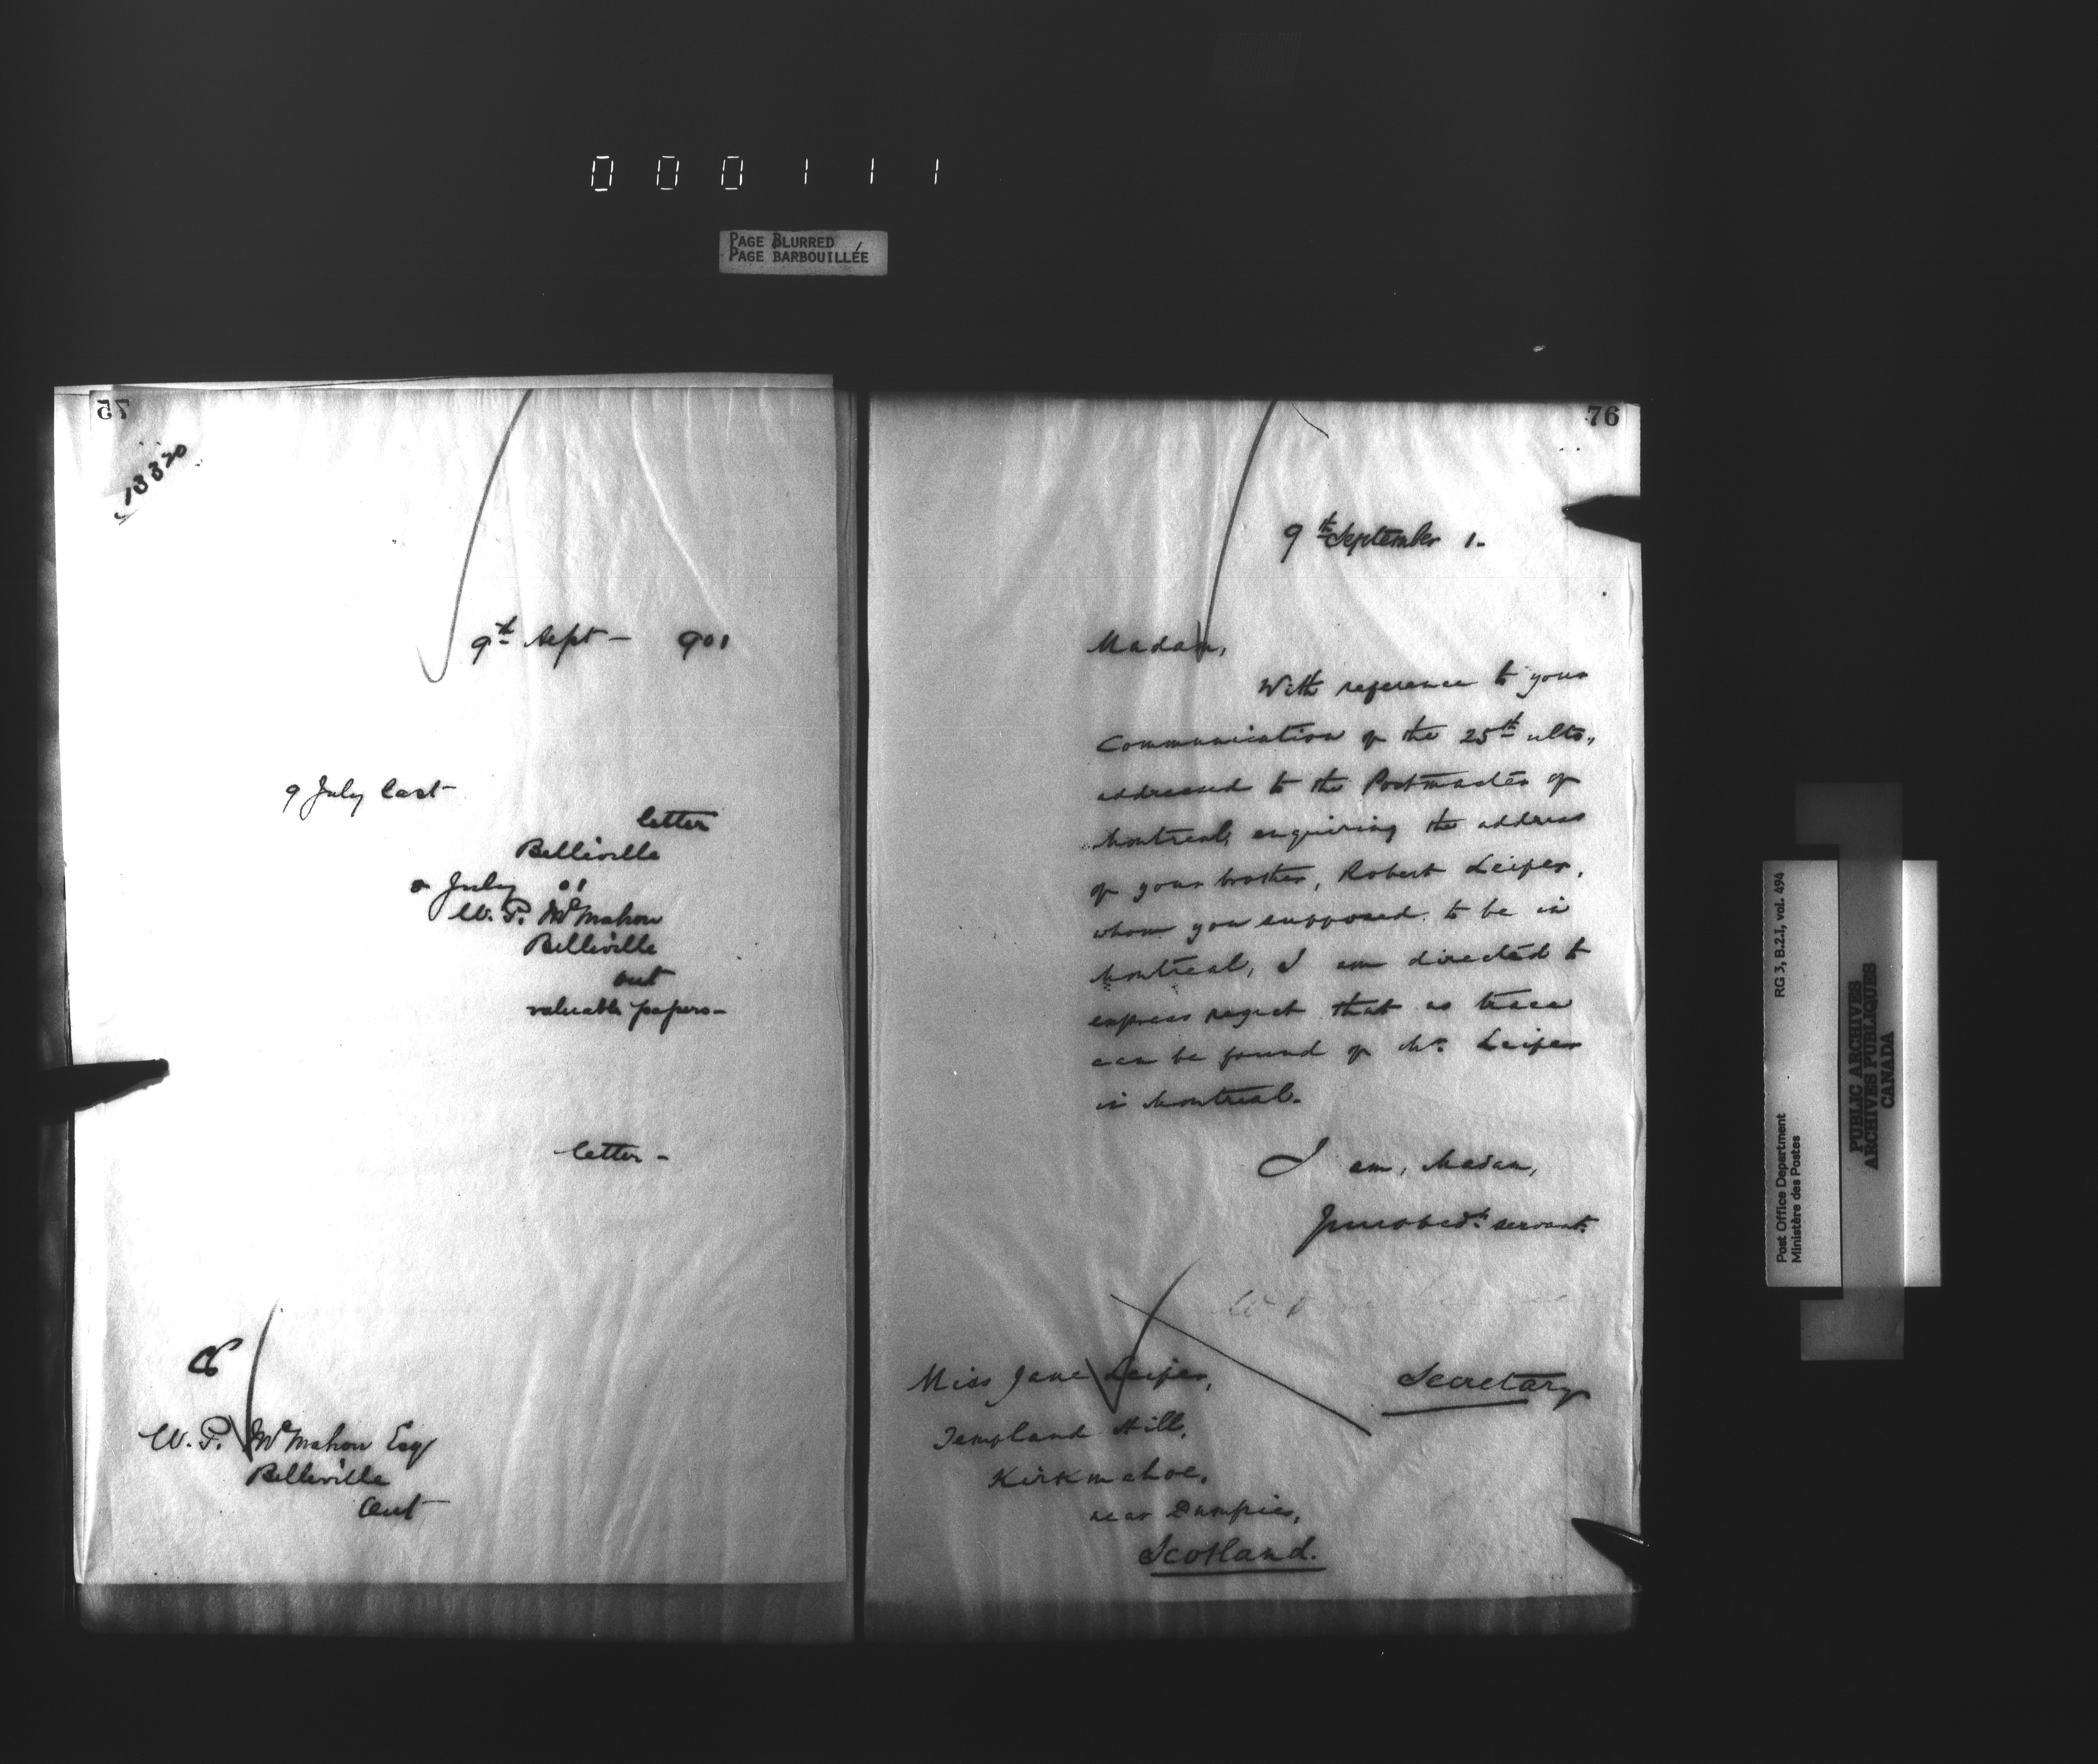 000111
PAGE BLURRED
PAGE BARBOUILLÉE
75
13320
9th Sept – 901
9 July last
letter
Belleville
July 01
W. P. McMahon
Belleville
Ont
valuable papers –
letter –
W. P. McMahon Esq
Belleville
Ont
76
9th September 1.
Madam,
With reference to your
Communication of the 25th ulto.,
addressed to the Postmaster of
Montreal, enquiring the address
of your brother, Robert Leiper,
whom you supposed to be in
Montreal, I am directed to
express regret that no trace
can be found of Mr. Leiper
in Montreal.
I am, Madam,
Your obedt. servant.
Secretary
Miss Jane Leiper,
Templand Hill,
Kirkmahoe,
near Dumfries,
Scotland.
RG 3, B.2.I, vol. 494
Post Office Department
Ministère des Postes
PUBLIC ARCHIVES
ARCHIVES PUBLIQUES
CANADA